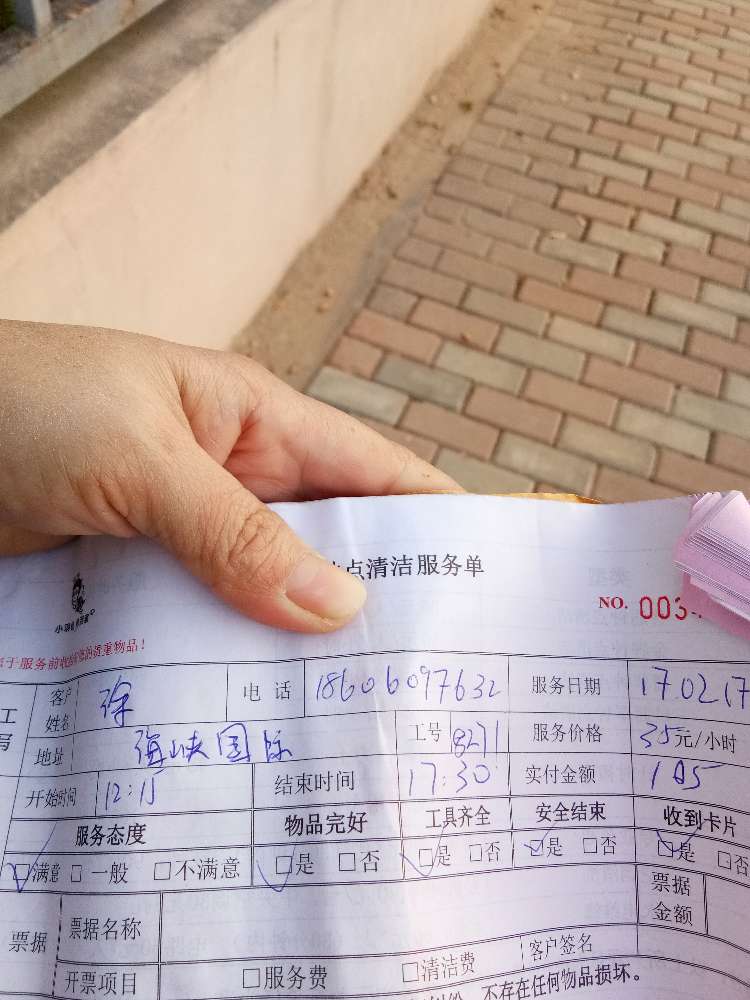 点清洁服务单
NO. 003
于服务前收好您的贵重物品！
客户姓名 徐 电话 18606097632 服务日期 17.02.17
地址 海峡国际 工号 8271 服务价格 35元/小时
开始时间 12:15 结束时间 17:30 实付金额 185
服务态度 物品完好 工具齐全 安全结束 收到卡片
满意 一般 不满意 是 否 是 否 是 否 是 否
票据 票据名称 票据金额
开票项目 服务费 清洁费 客户签名
不存在任何物品损坏。